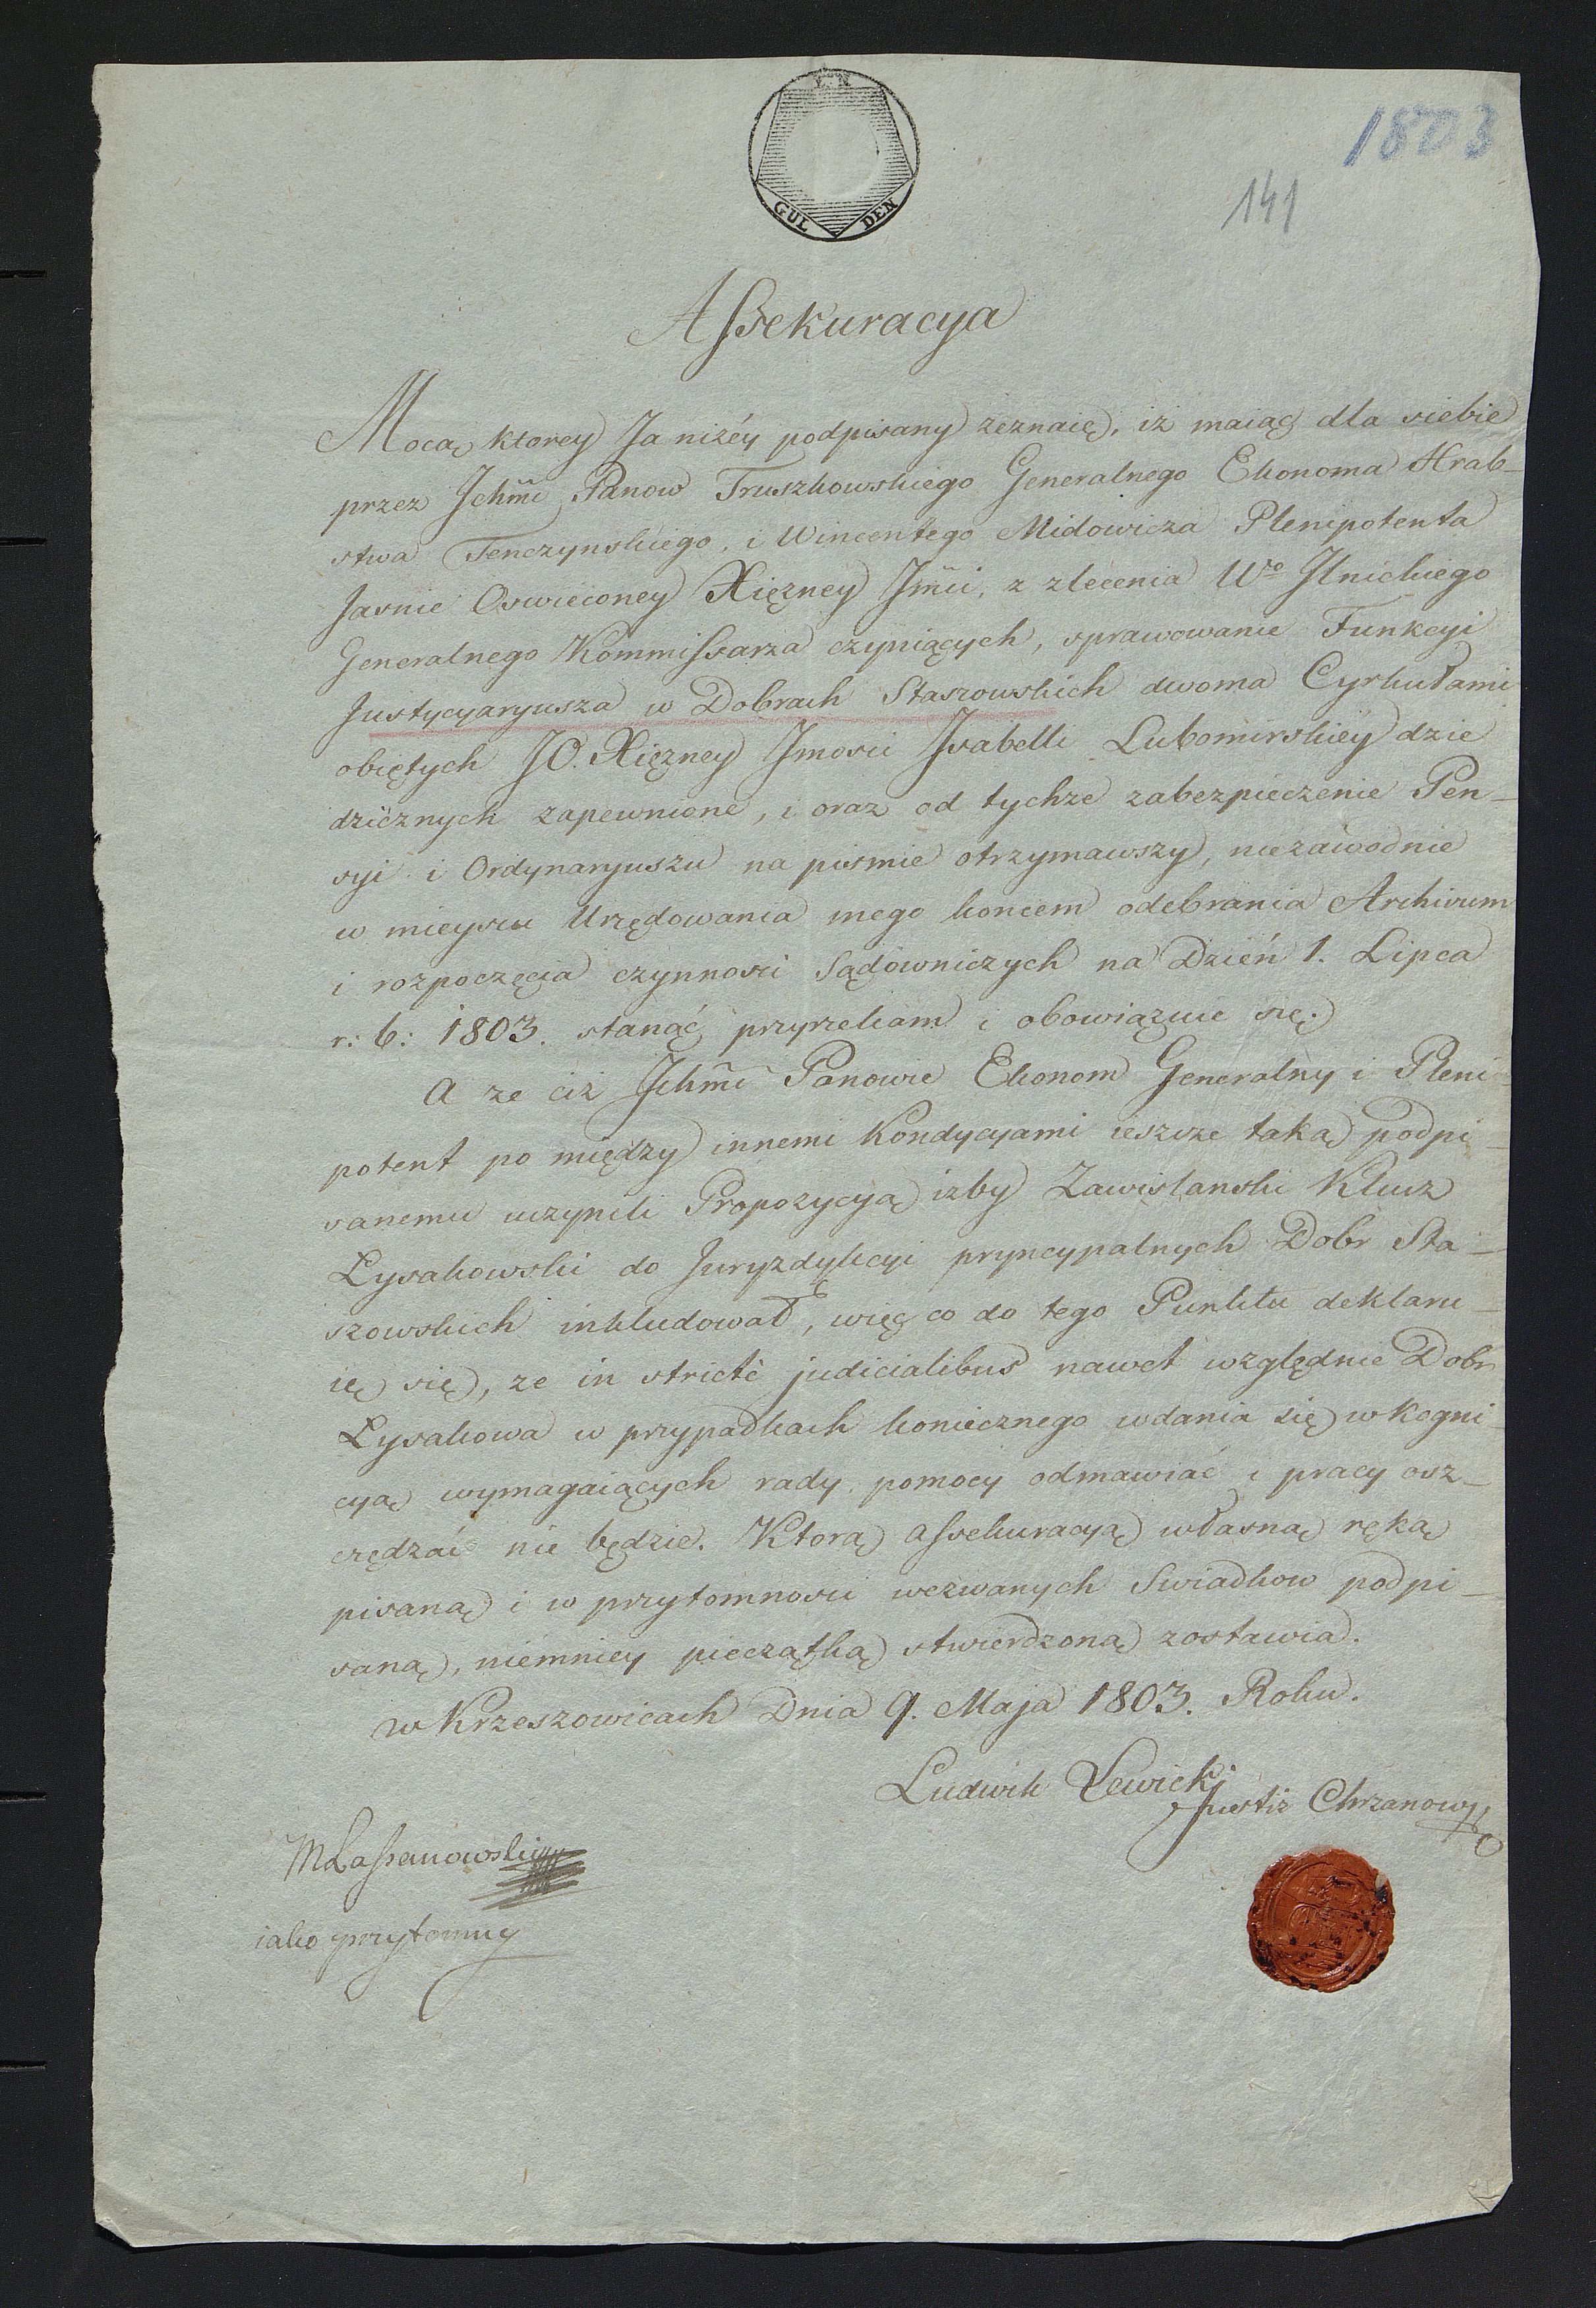 EIN
GUL DEN
1803
141
Assekuracya
Mocą ktorey Ja niżéy podpisany zeznaię, iż maiąc dla siebie
przez Jchm̃ci Panow Truszkowskiego Generalnego Ekonoma Hrab-
stwa Tenczynskiego, i Wincentego Midowicza Plenipotenta
Jasnie Oswieconey Xięzney Jm̃ci, z zlecenia Wo Ilnickiego
Generalnego Kommissarza czyniących, sprawowanie Funkcyi
Justycyaryusza w Dobrach Staszowskich dwoma Cyrkułami
obiętych JO. Xięzney Jmosci Isabelli Lubomirskiéy dzie
dzicznych zapewnione, i oraz od tychze zabezpieczenie Pen-
syi i Ordynaryuszu na pismie otrzymawszy, niezawodnie
w mieyscu Urzędowania mego koncem odebrania Archivum
i rozpoczęcia czynnosci Sądowniczych na Dzień 1. Lipca
r: b: 1803. stanąć przyrzekam i obowiązuie się.
A ze ciż Jchm̃ci Panowie Ekonom Generalny i Pleni-
potent po między innemi Kondycyami ieszcze taką podpi-
sanemu uczynili Propozycyą izby Zawislanski Klucz
Łysakowski do Juryzdykcyi pryncypalnych Dobr Sta-
szowskich inkludował, więc co do tego Punktu deklaru-
ię się, ze in stricté judicialibus nawet względnie Dobr
Łysakowa w przypadkach koniecznego wdania się w Kogni-
cyą wymagaiących rady, pomocy odmawiać i pracy osz-
czędzać nie będzie. Ktorą assekuracyą własną ręką
pisaną i w przytomnosci wezwanych Swiadkow podpi-
saną, niemniey pieczątką stwierdzoną zostawia.
w Krzeszowicach Dnia 9. Maja 1803. Roku.
Ludwik Lewicki
Justiz Chrzanow
iako przytomny